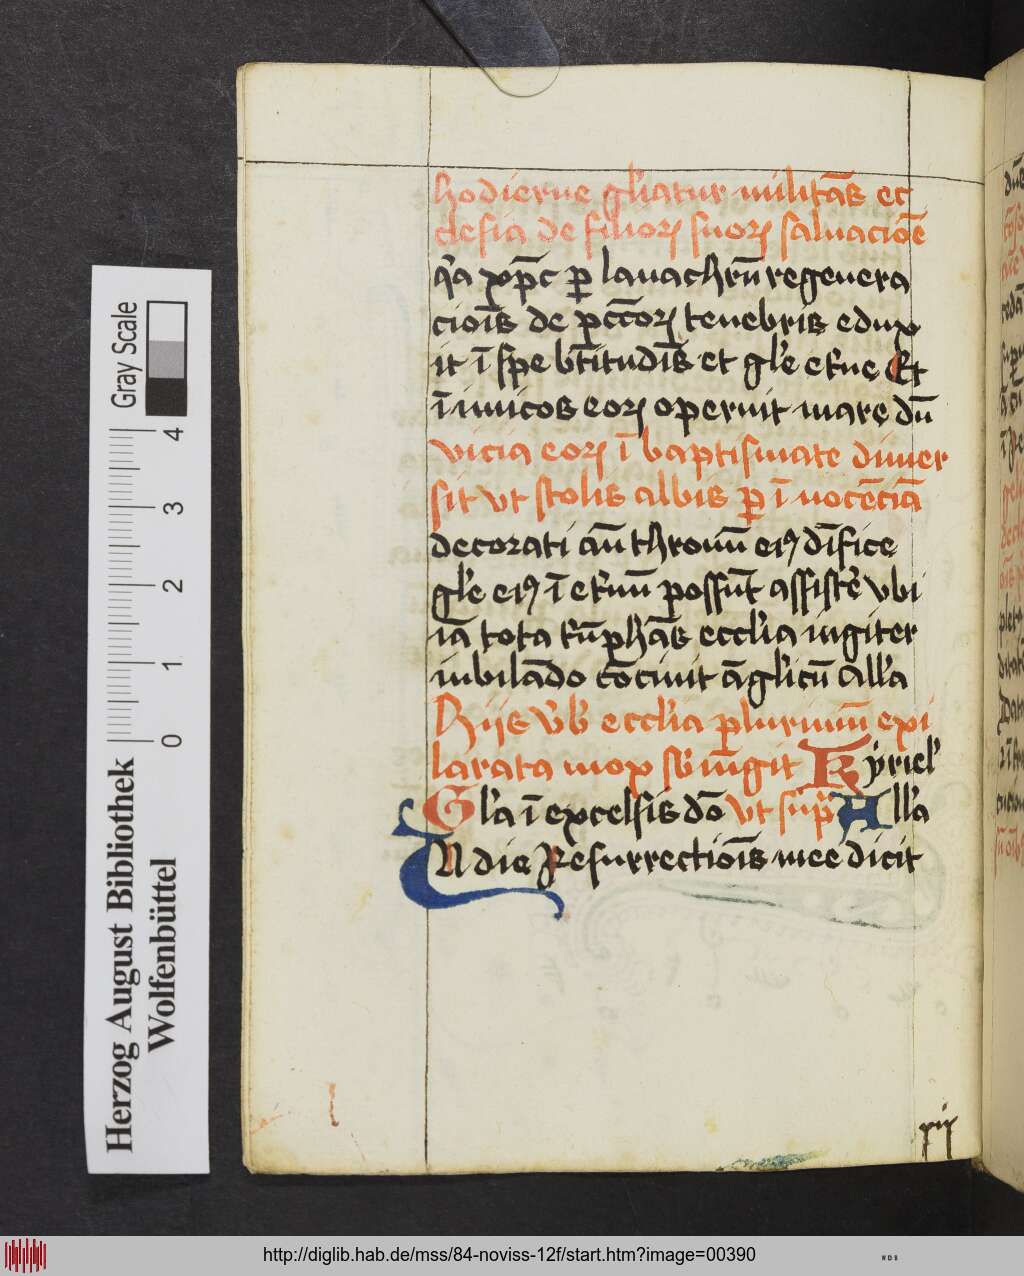 hodierne gl'iatur militās ec
clesia de filioꝝ suoꝝ saluacioē
q̄a xp̄c ꝑ lauachrū regenera
ciōis de pccōꝝ tenebris edux
it ī spe btītudīs et gl'e et'ne Et
īimicos eoꝝ operuit mare dū
vicia eoꝝ ī baptismate dimer
sit vt stolis albis ꝑ īnocēciā
decorati an̄ thronū eiꝰ dīfice
gl'e eiꝰ ī et'nū possūt assist'e vbi
iā tota t'ūphās eccl'ia iugiter
iubilādo cōcinit āgl'icū all'a
Hijs v'b' eccl'ia plurimū exi
larata mox sb'iūgit Kyriel'
Gl'a ī excelsis dō vt sup̄ All'a
In die Resurrectiōis mee dicit
xij
Gray Scale
4
3
2
1
0
Herzog August Bibliothek
Wolfenbüttel
http://diglib.hab.de/mss/84-noviss-12f/start.htm?image=00390